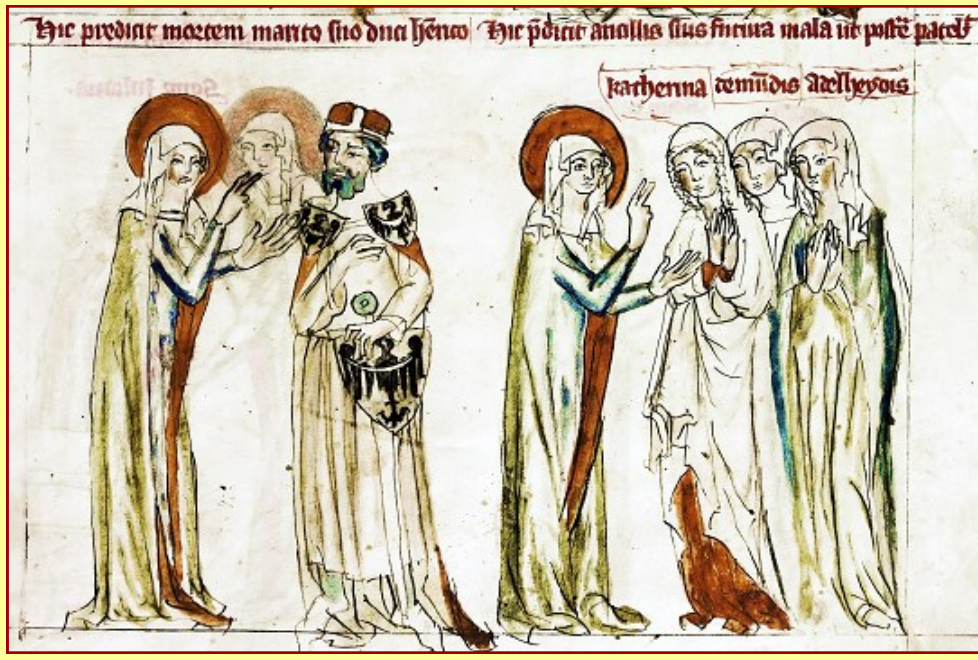 Hic predicit mortem marito suo duci hērico Hic p̄dicit ancillis suis futura mala ut
katherina demūdis Adelheydis